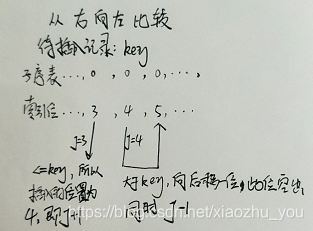 从右向左比较
待插入记录:key
子序表...,0,0,0,...,
索引位...,3,4,5,...
J=3 J=4
<=key,所以
插入的位置为
4,即J+1
大于key,向后移一位,此位空出
同时J-1
https://blog.csdn.net/xiaozhu_you